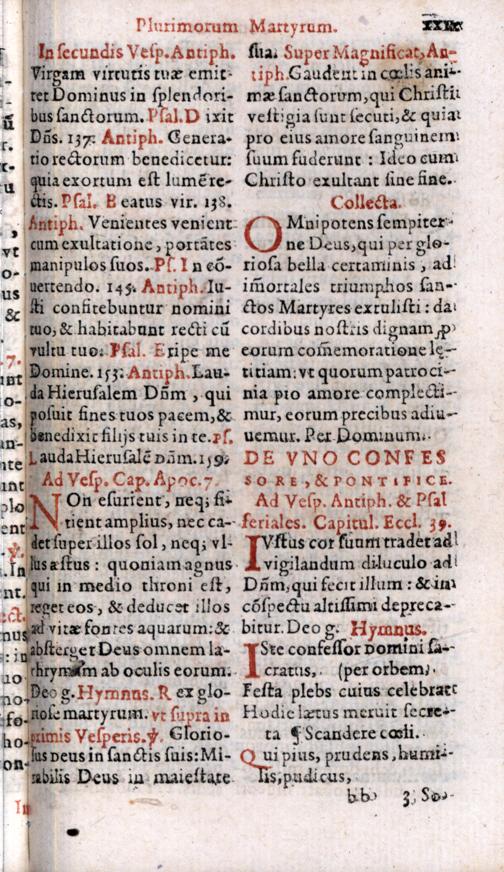 Plurimorum Martyrum.
In secundis Vesp. Antiph.
Virgam virtutis tuæ emit-
tet Dominus in splendori-
bus sanctorum. Psal. D ixit
Dñs. 137. Antiph. Genera-
tio rectorum benedicetur:
quia exortum est lumē re-
ctis. Psal. B eatus vir. 138.
Antiph. Venientes venient
cum exultatione, portātes
manipulos suos. Ps. I n cō-
uertendo. 145. Antiph. Iu-
sti confitebuntur nomini
tuo, & habitabunt recti cū
vultu tuo: Psal. Eripe me
Domine. 153: Antiph. Lau-
da Hierusalem Dñm, qui
posuit fines tuos pacem, &
benedixit filijs tuis in te. ps.
Lauda Hierusalē Dñm. 159.
Ad Vesp. Cap. Apoc. 7.
NOn esurient, neq; si-
tient amplius, nec ca-
det super illos sol, neq; vl-
lus æstus: quoniam agnus
qui in medio throni est,
reget eos, & deducet illos
ad vitæ fontes aquarum: &
absterget Deus omnem la-
chrymam ab oculis eorum.
Deo g. Hymnns. R ex glo-
riose martyrum. vt supra in
primis Vesperis. ℣. Glorio-
sus Deus in sanctis suis: Mi-
rabilis Deus in maiestate
sua. Super Magnificat, An-
tiph. Gaudent in cœlis ani-
mæ sanctorum, qui Christi
vestigia sunt secuti, & quia
pro eius amore sanguinem
suum fuderunt: Ideo cum
Christo exultant sine fine.
Collecta.
OMnipotens sempiter-
ne Deus, qui per glo-
riosa bella certaminis, ad
im̃ortales triumphos san-
ctos Martyres extulisti: da
cordibus nostris dignam ꝓ
eorum com̃emoratione lę-
titiam: vt quorum patroci-
nia pio amore complecti-
mur, eorum precibus adiu-
uemur. Per Dominum.
DE VNO CONFES
SORE, & PONTIFICE.
Ad Vesp. Antiph. & Psal
feriales. Capitul. Eccl. 39.
IVstus cor suum tradet ad
vigilandum diluculo ad
Dñm, qui fecit illum: & in
cōspectu altissimi depreca-
bitur. Deo g. Hymnus.
ISte confessor Domini sa-
cratus, (per orbem,
Festa plebs cuius celebrat
Hodie lætus meruit secre-
ta ¶ Scandere cœli.
Qui pius, prudens, humi-
lis, pudicus,
bb 3 So-